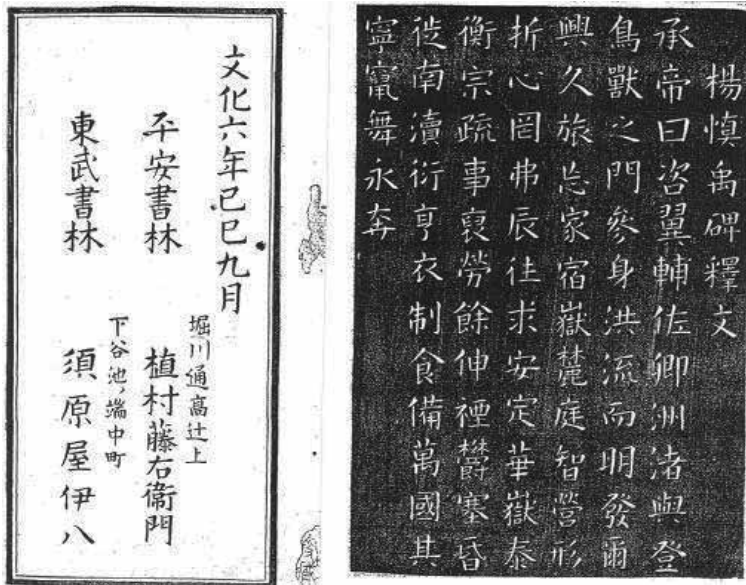 楊慎禹碑釋文
承帝曰咨翼輔佐卿洲渚與登
鳥獸之門參身洪流而明發爾
興久旅忘家宿嶽麓庭智營形
折心罔弗辰往求安定華嶽泰
衡宗疏事裒勞餘伸禋欝塞昏
徙南瀆衍亨衣制食備萬國其
寧竄舞永奔
文化六年己巳九月
平安書林
堀川通高辻上
植村藤右衞門
東武書林
下谷池ノ端中町
須原屋伊八